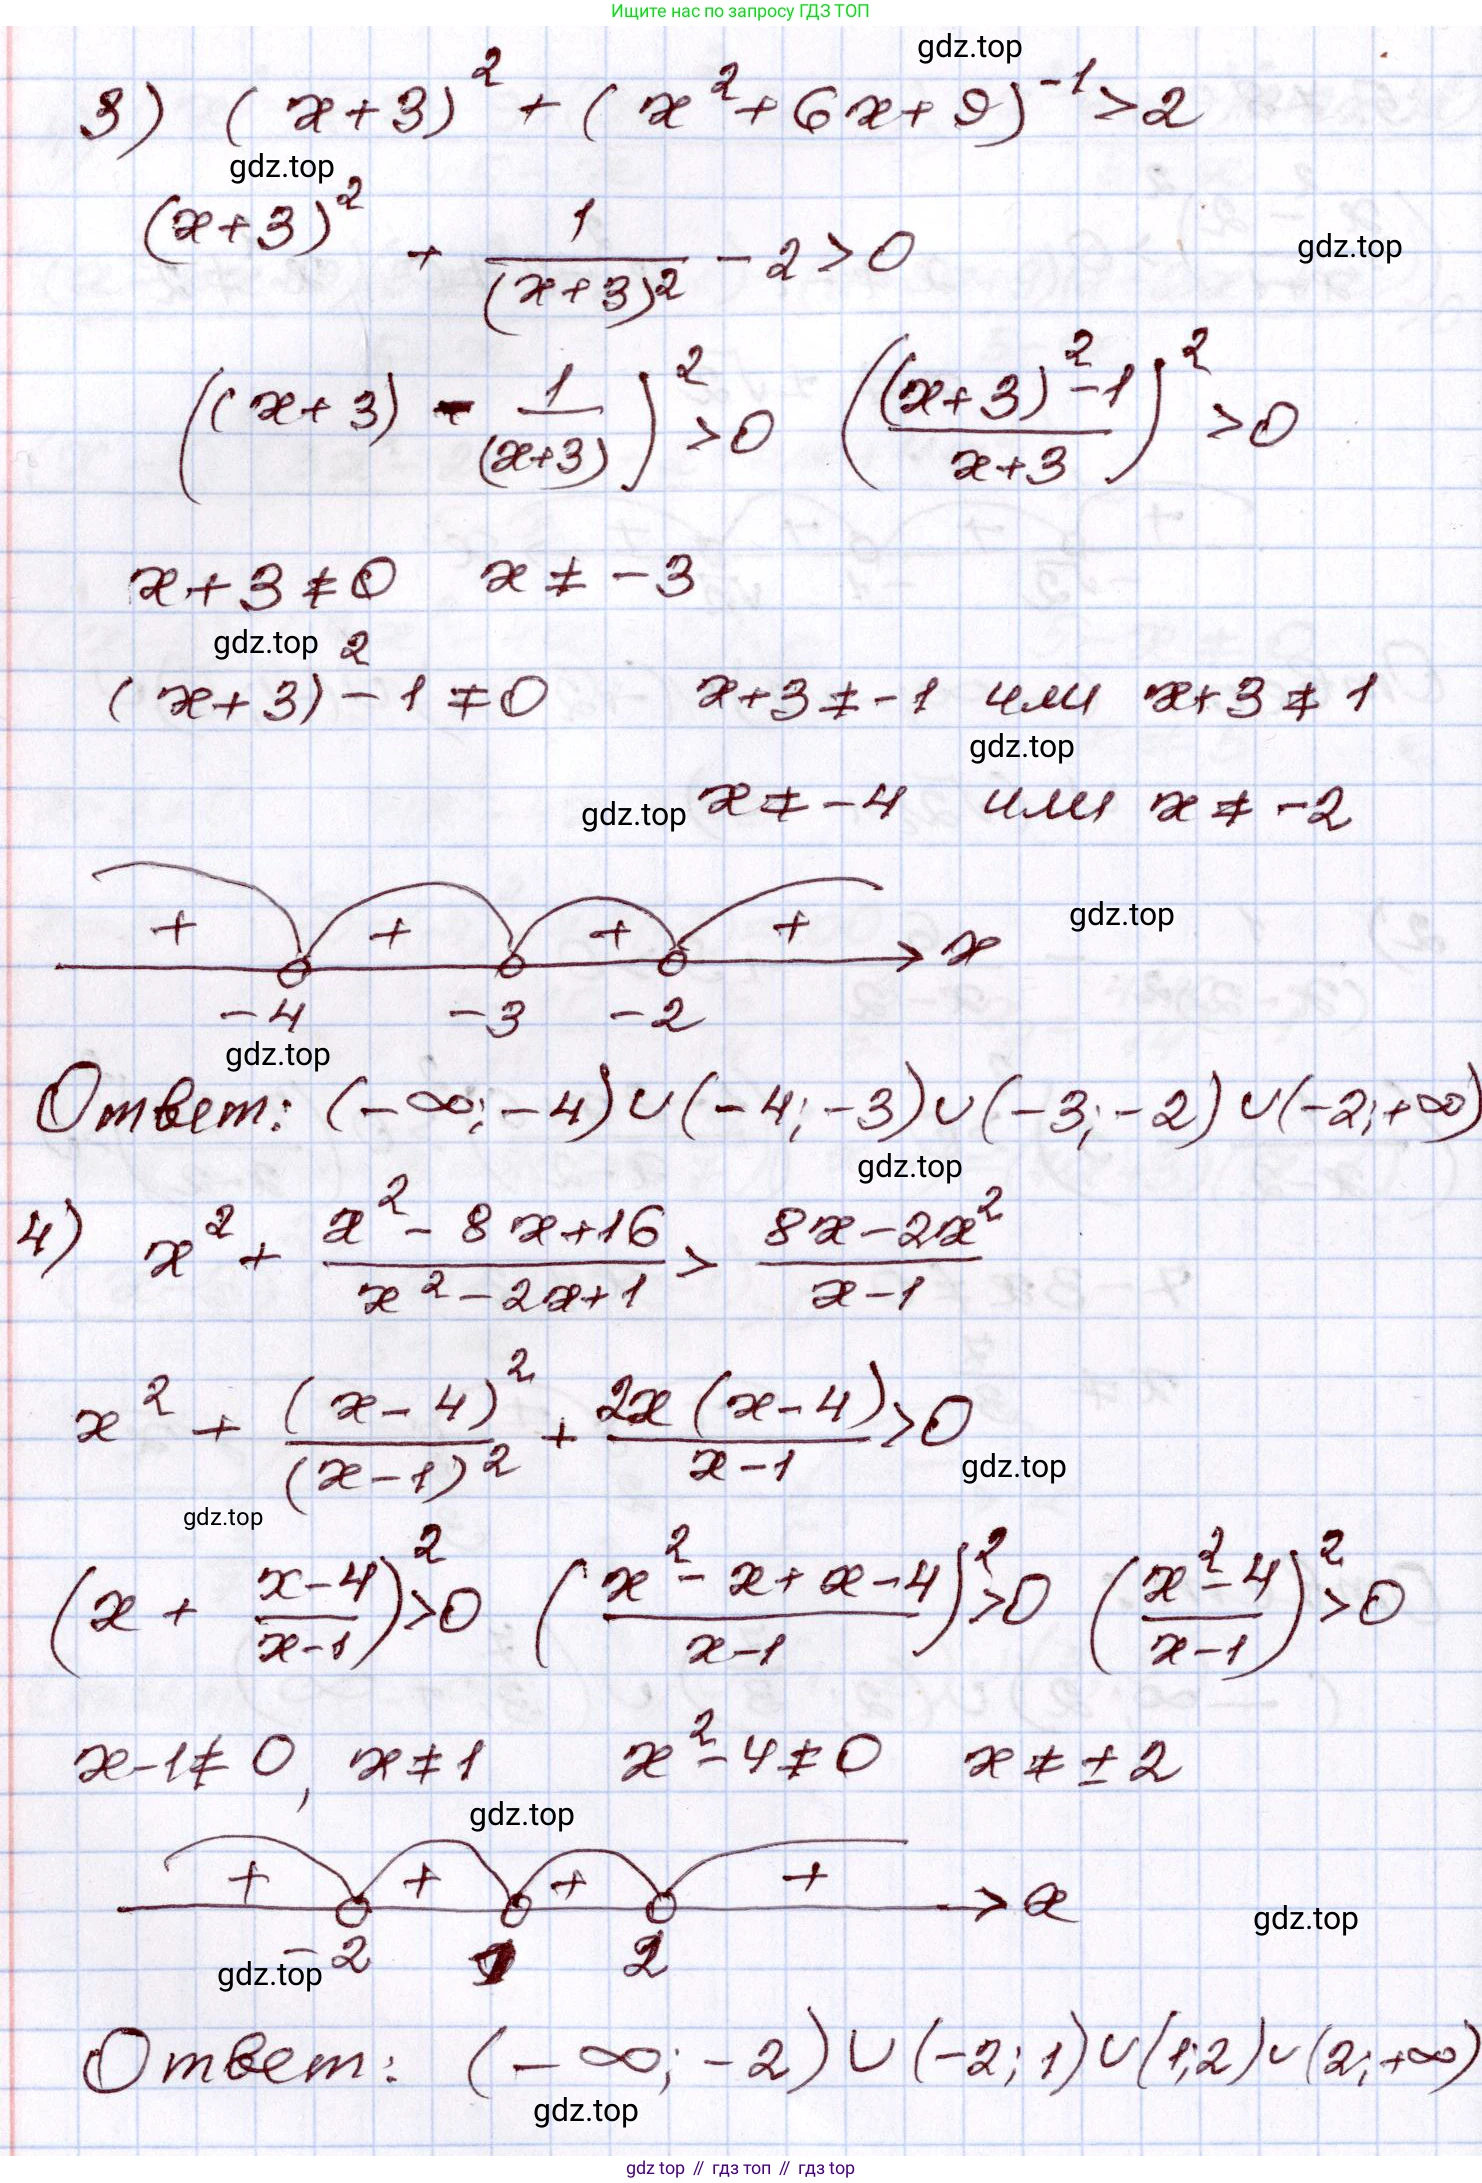 Ищите нас по запросу ГДЗ ТОП
gdz.top
3) (x+3)² + (x²+6x+9)⁻¹ > 2
gdz.top
(x+3)² + 1/(x+3)² - 2 > 0
gdz.top
((x+3) - 1/(x+3))² > 0 (((x+3)²-1)/(x+3))² > 0
x+3≠0 x≠-3
gdz.top
(x+3)²-1≠0 x+3≠-1 или x+3≠1
gdz.top
gdz.top
x≠-4 или x≠-2
+ + + + x
gdz.top
-4 -3 -2
gdz.top
Ответ: (-∞;-4)∪(-4;-3)∪(-3;-2)∪(-2;+∞)
gdz.top
4) x² + (x²-8x+16)/(x²-2x+1) > (8x-2x²)/(x-1)
x² + (x-4)²/(x-1)² + 2x(x-4)/(x-1) > 0
gdz.top
gdz.top
(x + (x-4)/(x-1))² > 0 ((x²-x+x-4)/(x-1))² > 0 ((x²-4)/(x-1))² > 0
x-1≠0, x≠1 x²-4≠0 x≠±2
gdz.top
+ + + + x
gdz.top
-2 1 2
gdz.top
Ответ: (-∞;-2)∪(-2;1)∪(1;2)∪(2;+∞)
gdz.top
gdz top // гдз топ // гдз top